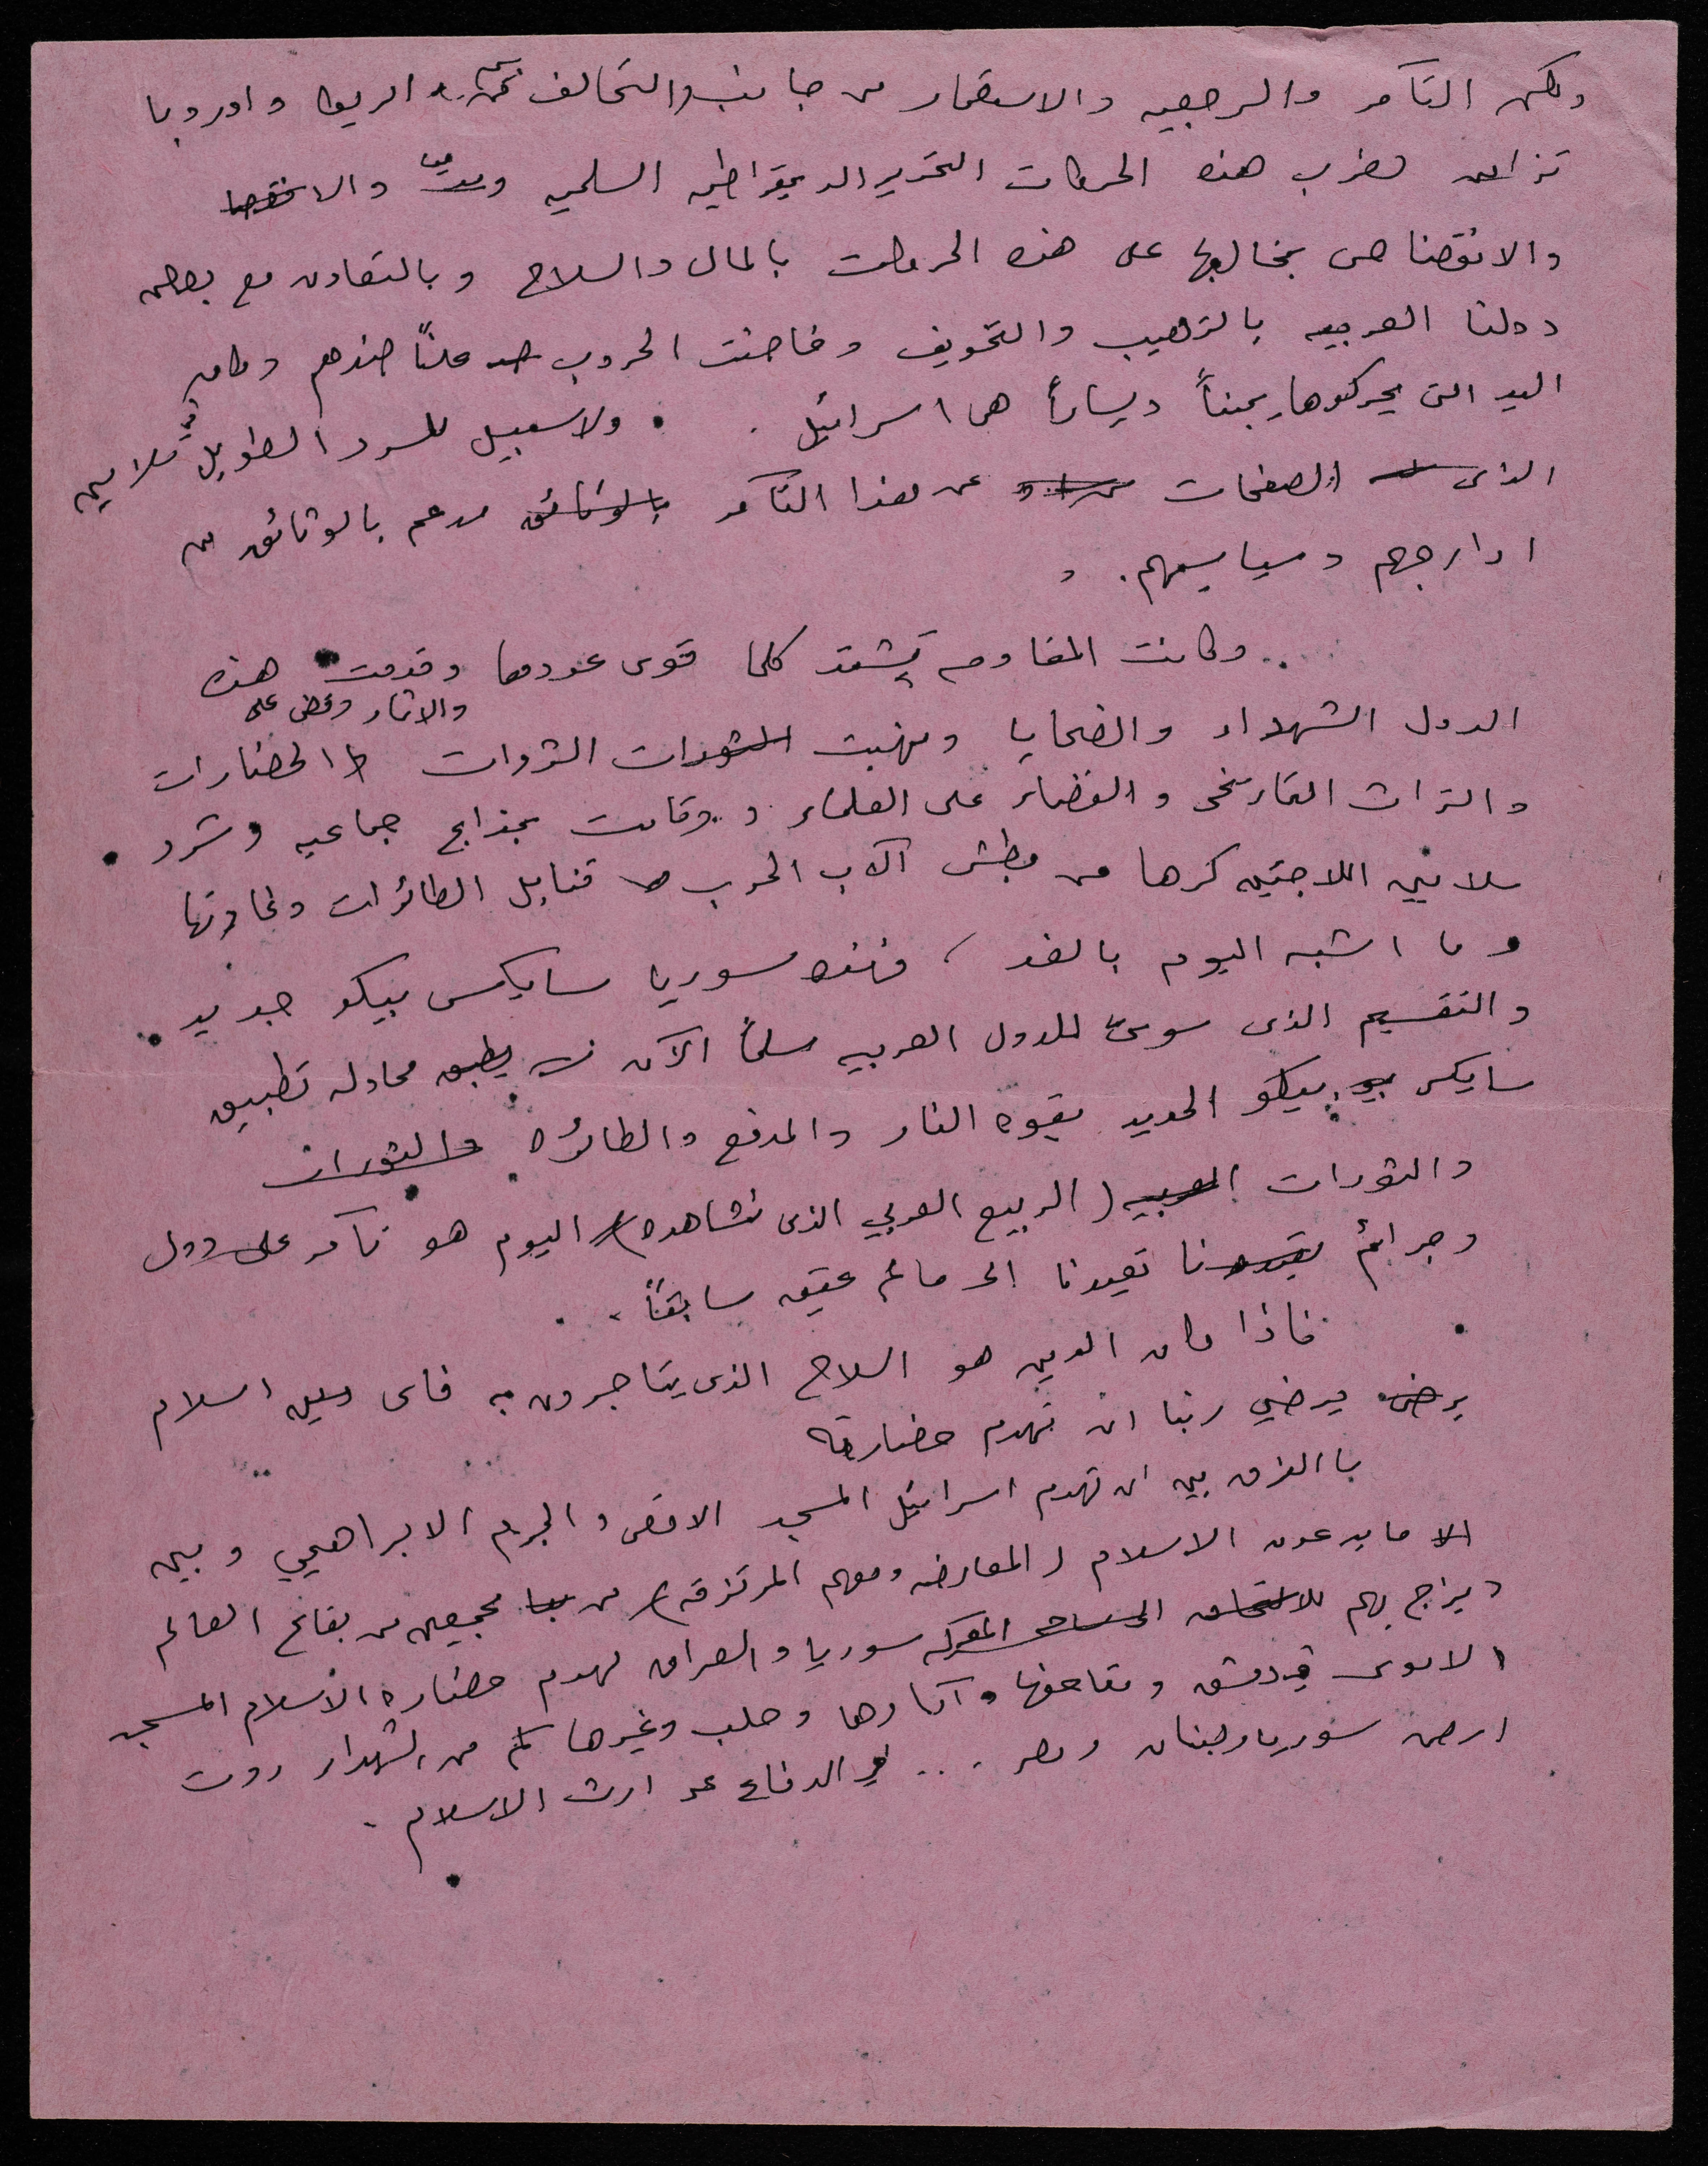 ولكن التآمر والرجعيه والاستعمار من جانب (التحالف امريكا واوروبا
تزامن لضرب هذه الحركات التحرير الديمقراطيه السلميه والانقضا
والانقضاض بمخالبها على هذه الحركات بالمال والسلاح وبالتعاون مع بعض
دولنا العربيه بالترهيب والتخويف وخاضت الحروب ضد علناً ضدهم وكانت
اليد التى يحركوها يميناً ويساراً هى اسرائيل . ولاسبيل للسرد الطويل لملايين
الذى الصفحات عن هذا التآمر بالوثائق مدعم بالوثائق من
ادارجهم وسياسيهم . و
.. وكانت المقاومه تشتد كلما قوى عودها وقدمت هذه
والاثار وقضى على
الدول الشهداء والضحايا ونهبت الثورات الثروات الحضارات
والتراث التاريخى والقضاء على العلماء و .. وقامت بمذابح جماعيه وشرد
ملايين اللاجئين كرها من بطش آلات الحرب قنابل الطائرات وغاراتها
وما اشبه اليوم بالغد ، فهذه سوريا سايكس بيكو جديد ..
والتقسيم الذى سوىّ للدول العربيه سلماً الآن يطبق محاوله تطبيق
سايكس بيو بيكو الجديد بقوه النار والمدفع والطائره والثورات
والثورات العربيه (الربيع العربي الذى نشاهده) اليوم هو تآمر على دول
وجرائم تعيدنا الى عالم عتيق سابقاً .
فاذا كان الدين هو السلاح الذى يتاجرون به فاى دين اسلام
يرضى يرضي ربنا ان تهدم حضارته
با الفرق بين ان تهدم اسرائيل المسجد الاقصى والحرم الابراهيمي وبين
الا ما يدعون الاسلام (المعارضه ومعهم المرتزقه) من مجمعين من بقائع العالم
ويزاج بهم للالتحاق الى ساحه المعركه سوريا والعراق لهدم حضاره الاسلام المسجد
الاموى في دمشق ومتاحفها وآثارها وحلب وغيرها كم من الشهداء روت
ارض سوريا ولبنان ومصر ... في الدفاع عن ارث الاسلام .